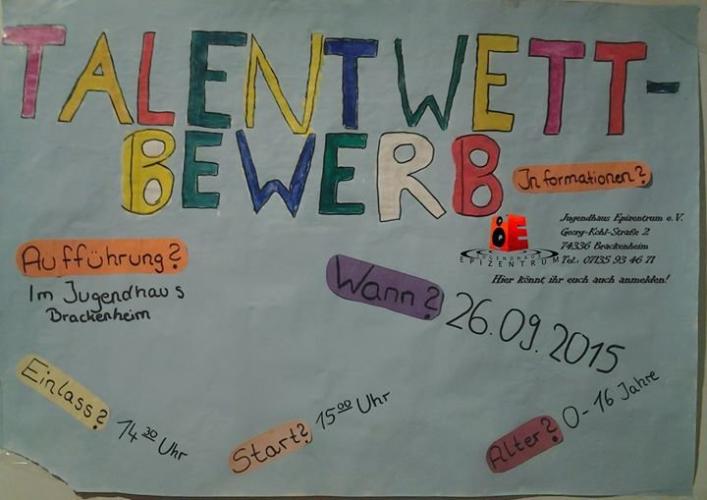 TALENTWETT-
BEWERB
Informationen?
Jugendhaus Epizentrum e.V.
Georg-Kohl-Straße 2
74336 Brackenheim
Tel.: 07135 93 46 71
Hier könnt ihr euch auch anmelden!
JUGENDHAUS
EPIZENTRUM
Aufführung?
Im Jugendhaus
Brackenheim
Wann? 26.09.2015
Einlass? 14³⁰ Uhr
Start? 15⁰⁰ Uhr
Alter? 0-16 Jahre